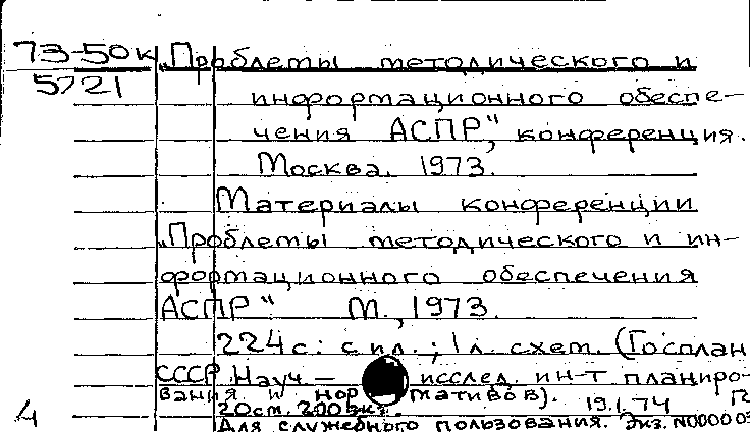 73-50к „Проблемы методического и
5721
информационного обеспе-
чения АСПР", конференция.
Москва. 1973.
Материалы конференции
„Проблемы методического и ин-
формационного обеспечения
АСПР" М., 1973.
224 с: с ил.; 1 л. схем. (Госплан
СССР. Науч.- исслед. ин-т планиро-
вания и нормативов). 19.1.74
4 20 см. 200 экз.
Для служебного пользования. Экз. N00000